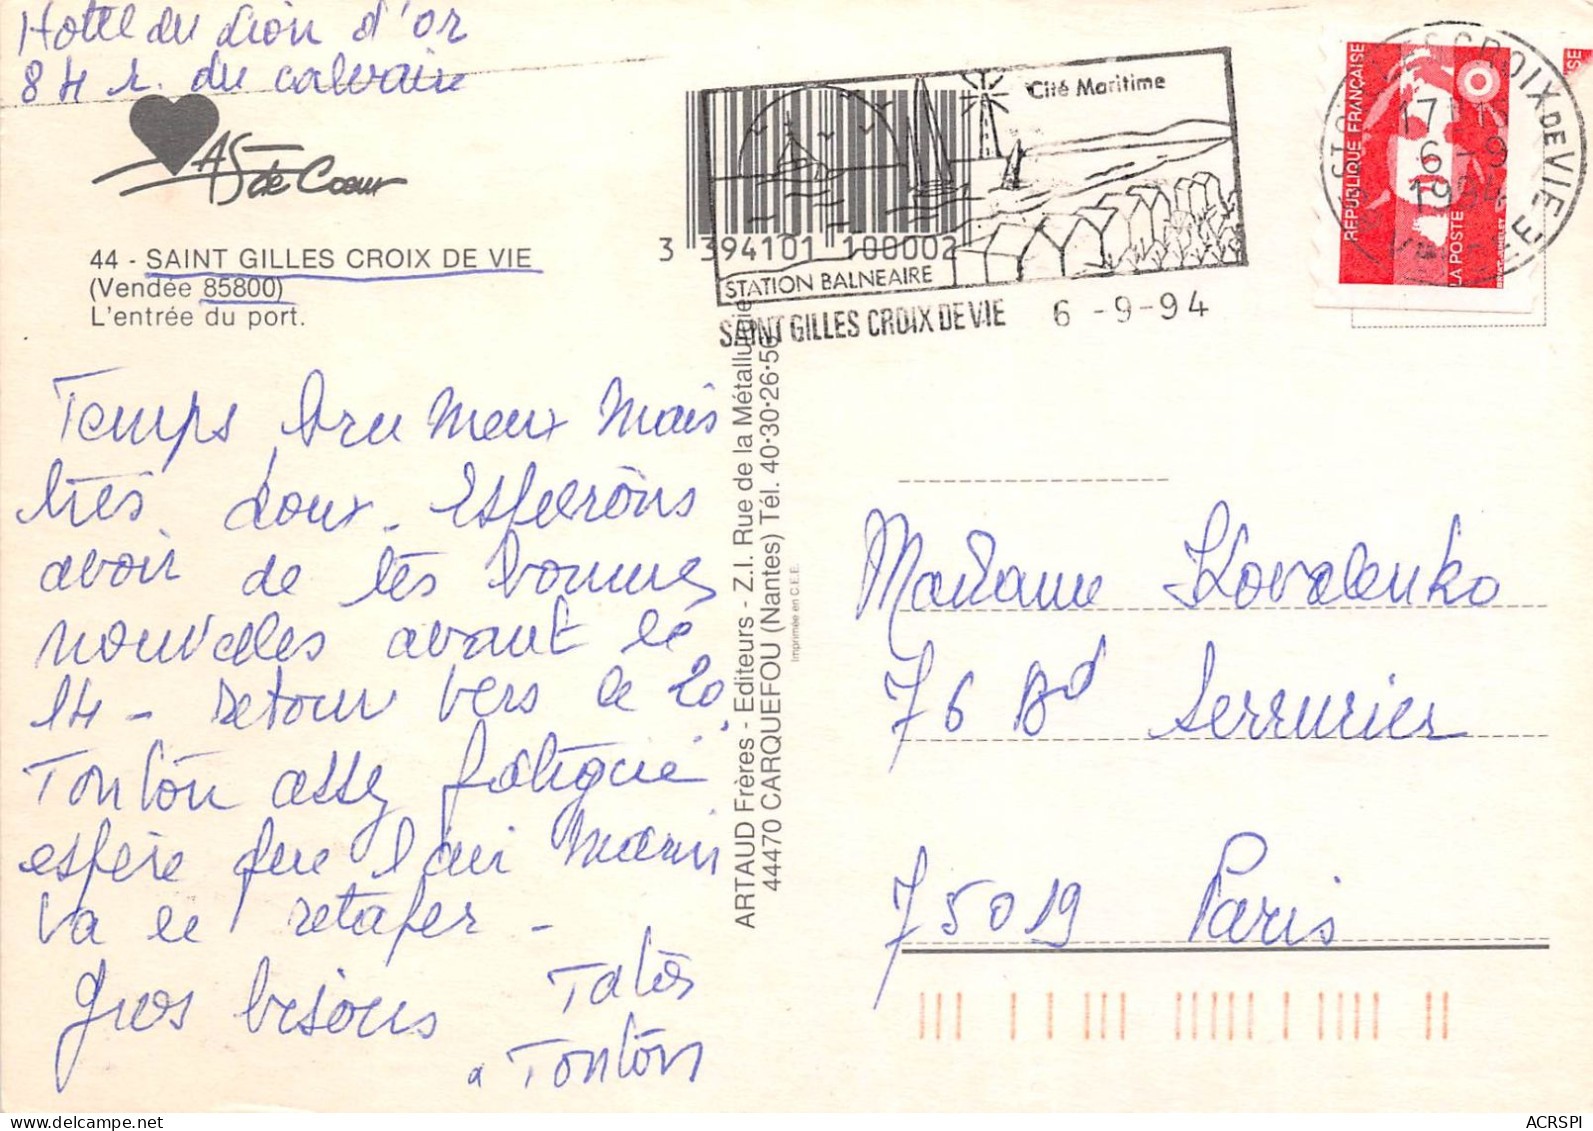 Hotel du Lion d'or
84 r. du calvaire
AS de Coeur
44 - SAINT GILLES CROIX DE VIE
(Vendée 85800)
L'entrée du port.
Temps brumeux mais
très doux - Espérons
avoir de tes bonnes
nouvelles avant le
14 - retour vers le 20,
Tonton assez fatigué
espère que l'air marin
va le retaper -
Gros bisous Tatës
a Tonton
3 394101 100002
Cité Maritime
STATION BALNEAIRE
SAINT GILLES CROIX DE VIE 6 -9-94
ARTAUD Frères - Editeurs - Z.I. Rue de la Métallurgie
44470 CARQUEFOU (Nantes) Tél. 40·30·26·50
Imprimée en C.E.E.
REPUBLIQUE FRANÇAISE
LA POSTE
CROIX DE VIE
6 -9
1994
Madame Kovalenko
76 Bd Serrurier
75019 Paris
ACRSPI